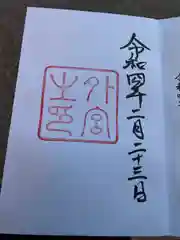 令和四年二月二十三日
外宮
之印